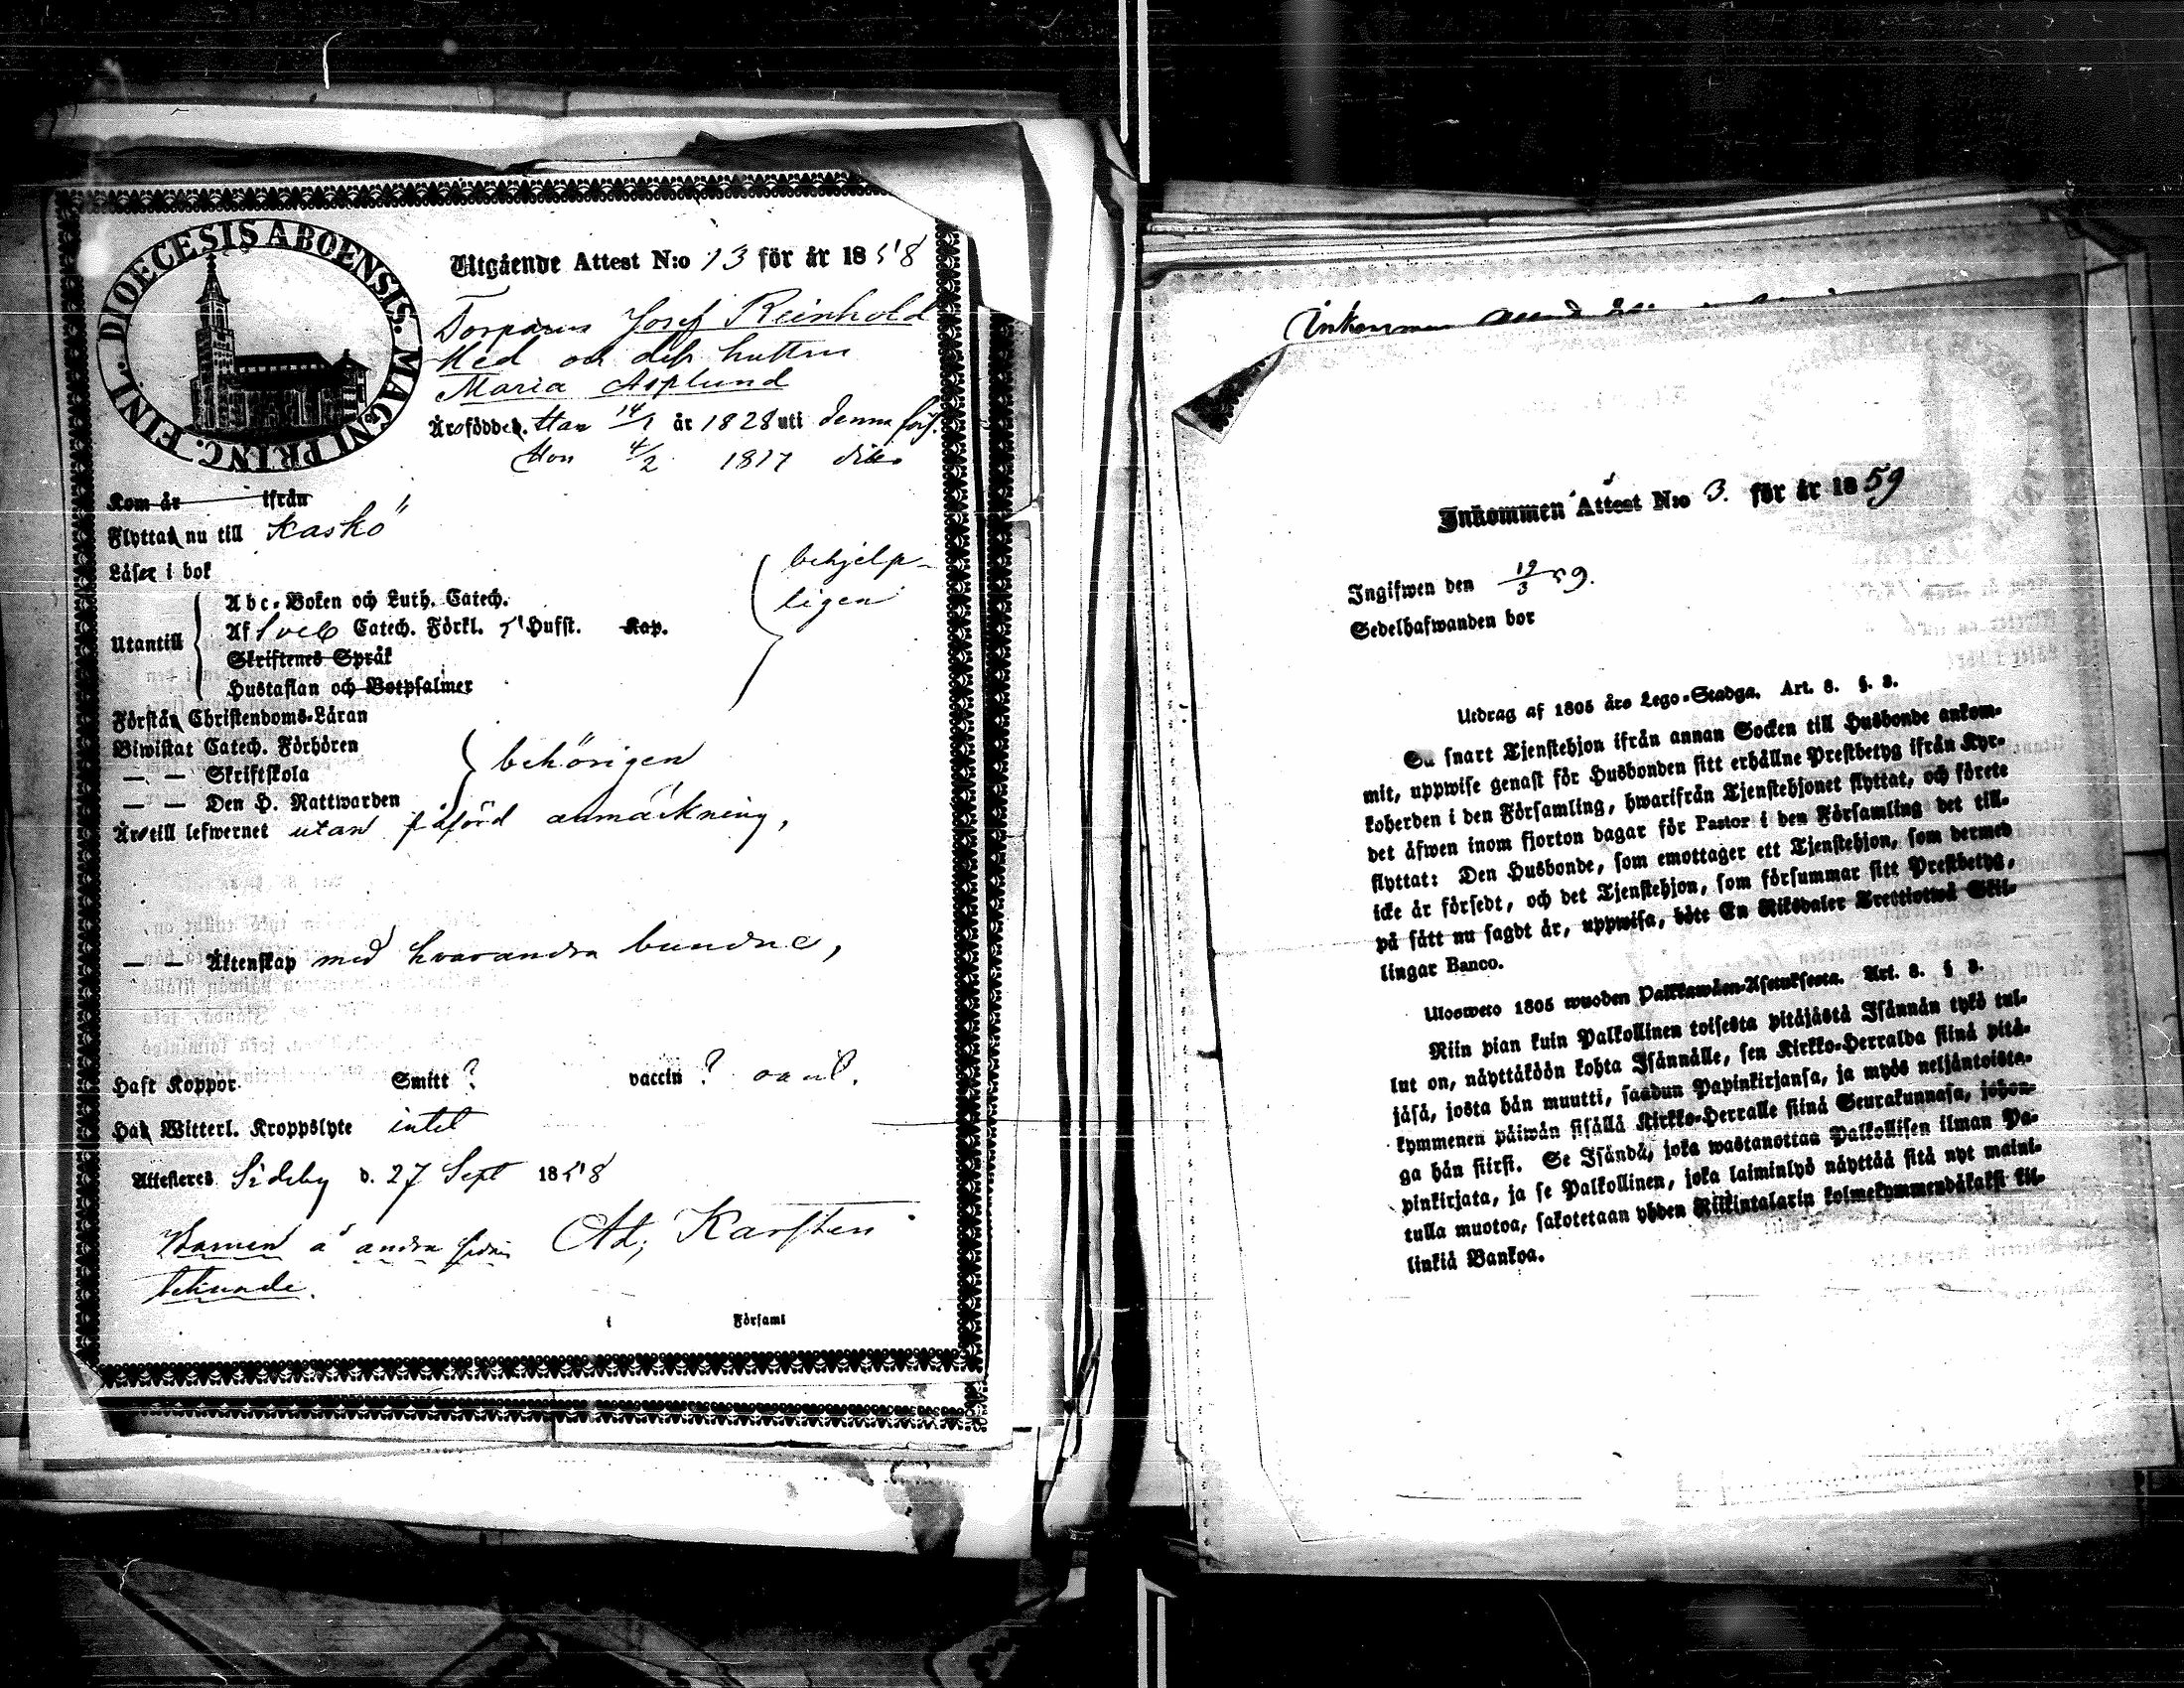 DIOECESIS ABOENSIS. MAGNI PRINC. FINL.
Utgående Attest N:o 13 för år 1858
Torparen Josef Reinhold
Med och dess hustru
Maria Asplund
Äro födde. Han 14/1 år 1828 uti denna förs.
Hon 4/2 1817 dito
Kom år ifrån
Flytta nu till Kaskö
Läser i bok
behjelp-
ligen
Utantill
Abc-Boken och Luth. Catech.
Af Sveb Catech. Förkl. 5 Hufst. Kap.
Skriftenes Språk
Hustaflan och Botpsalmer
Förstå Christendoms-Läran
Biwistat Catech. Förhören
— — Skriftskola
— — Den H. Nattwarden
behörigen
Äro till lefwernet utan påförd anmärkning,
— — Äktenskap med hvarandra bundne,
Haft Koppor Smitt ? vaccin ?
Ha Witterl. Kroppslyte intet
Attesteras Sideby d. 27 Sept 1858
Barnen å andra sidan Ad. Karsten
tecknade.
i Församl
Inkommen
Inkommen Attest N:o 3. för år 1859
Ingifwen den 19/3 59.
Sedelhafwanden bor
Utdrag af 1805 års Lego-Stadga. Art. 8. §. 3.
Så snart Tjenstehjon ifrån annan Socken till Husbonde ankom-
mit, uppwise genast för Husbonden sitt erhållne Prestbetyg ifrån Kyr-
koherden i den Församling, hwarifrån Tjenstehjonet flyttat, och förete
det äfwen inom fjorton dagar för Pastor i den Församling det till-
flyttat: Den Husbonde, som emottager ett Tjenstehjon, som dermed
icke är försedt, och det Tjenstehjon, som försummar sitt Prestbetyg,
på sätt nu sagdt är, uppwisa, böte En Riksdaler Trettiotwå Skil-
lingar Banco.
Ulosweto 1805 wuoden Palkkawäen-Asetuksesta. Art. 8. § 3.
Niin pian kuin Palkollinen toisesta pitäjästä Isännän tykö tul-
lut on, näyttäköön kohta Isännälle, sen Kirkko-Herralda siinä pitä-
jäsä, josta hän muutti, saadun Papinkirjansa, ja myös neljäntoista-
kymmenen päiwän sisällä Kirkko-Herralle siinä Seurakunnasa, johon-
ga hän siirsi. Se Isändä, joka wastanottaa Palkollisen ilman Pa-
pinkirjata, ja se Palkollinen, joka laiminlyö näyttää sitä nyt maini-
tulla muotoa, sakotetaan yhden Riikintalarin kolmekymmendäkaksi kil-
linkiä Bankoa.